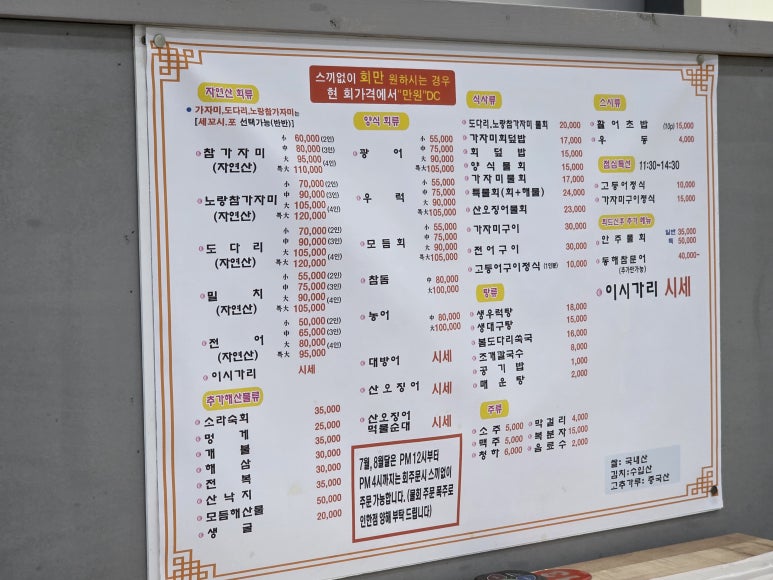 스끼없이 회만 원하시는 경우
현 회가격에서 "만원"DC
자연산 회류
• 가자미,도다리,노랑참가자미는
[세꼬시.포 선택가능(반반)]
참가자미
(자연산)
小 60,000(2인)
中 80,000(3인)
大 95,000(4인)
특大 110,000
노랑참가자미
(자연산)
小 70,000(2인)
中 90,000(3인)
大 105,000(4인)
특大 120,000
도다리
(자연산)
小 70,000(2인)
中 90,000(3인)
大 105,000(4인)
특大 120,000
밀치
(자연산)
小 55,000(2인)
中 75,000(3인)
大 90,000(4인)
특大 105,000
전어
(자연산)
小 50,000(2인)
中 65,000(3인)
大 80,000(4인)
특大 95,000
이시가리 시세
추가해산물류
소라숙회 35,000
멍게 25,000
개불 30,000
해삼 30,000
전복 35,000
산낙지
모듬해산물 50,000
생굴 20,000
양식 회류
광어
小 55,000
中 75,000
大 90,000
특大 105,000
우럭
小 55,000
中 75,000
大 90,000
특大 105,000
모듬회
小 55,000
中 75,000
大 90,000
특大 105,000
참돔
中 80,000
大 100,000
농어
中 80,000
大 100,000
대방어 시세
산오징어 시세
산오징어
먹물순대 시세
7월, 8월달은 PM 12시부터
PM 4시까지는 회주문시 스끼없이
주문 가능합니다. (물회 주문 폭주로
인한점 양해 부탁 드립니다)
식사류
도다리,노랑참가자미 물회 20,000
가자미회덮밥 17,000
회덮밥 15,000
양식물회 15,000
가자미물회 17,000
특물회(회+해물) 24,000
산오징어물회 23,000
가자미구이 30,000
전어구이 30,000
고등어구이정식 (1인분) 10,000
탕류
생우럭탕 18,000
생대구탕 15,000
봄도다리쑥국 16,000
조개칼국수 8,000
공기밥 1,000
매운탕 2,000
주류
소주 5,000
맥주 5,000
청하 6,000
막걸리 4,000
복분자 15,000
음료수 2,000
스시류
활어초밥 (10p) 15,000
우동 4,000
점심특선 11:30~14:30
고등어정식 10,000
가자미구이정식 15,000
안주물회
일반 35,000
특 50,000
동해참문어 40,000~
(추가만가능)
이시가리 시세
쌀: 국내산
김치: 수입산
고추가루: 중국산